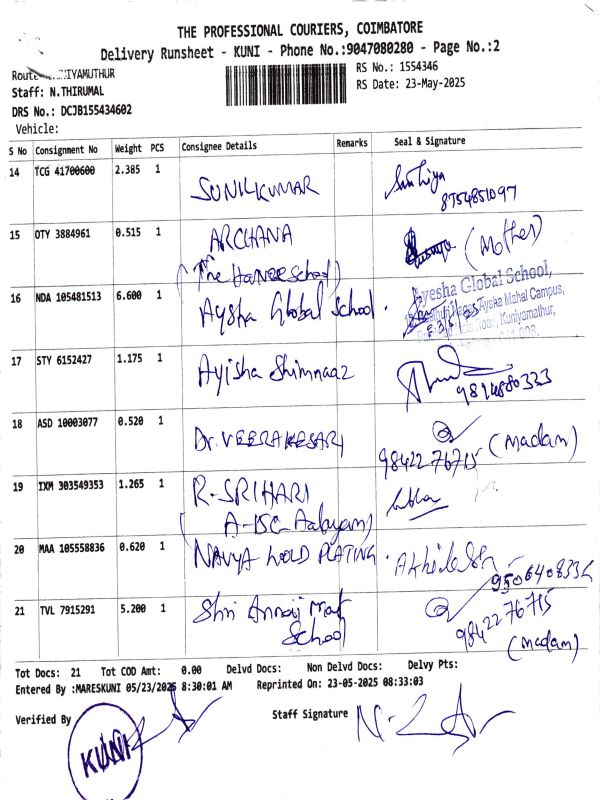 THE PROFESSIONAL COURIERS, COIMBATORE
Delivery Runsheet - KUNI - Phone No.:9047080280 - Page No.:2
RS No.: 1554346
Staff: N.THIRUMAL
RS Date: 23-May-2025
DRS No.: DCJB155434602
Vehicle:
S No Consignment No Weight PCS Consignee Details Remarks Seal & Signature
14 TCG 41700600 2.385 1 SUNILKUMAR
8754851097
15 OTY 3884961 0.515 1 ARCHANA (Mother)
(The Hanee School)
16 NDA 105481513 6.600 1 Aysha Global School.
Ayesha Global School,
Aysha Mahal Campus,
Kuniyamuthur,
17 STY 6152427 1.175 1 Ayisha Shimnaaz
9814880333
18 ASD 10003077 0.520 1 Dr. VEERAKESARI
9842276715 (Madam)
19 IXM 303549353 1.265 1 R. SRIHARI
20 MAA 105558836 0.620 1 NAVYA GOLD PLATING.
21 TVL 7915291 5.200 1 Shri Annai Mat
School
9842276715
(madam)
Tot Docs: 21 Tot COD Amt: 0.00 Delvd Docs: Non Delvd Docs: Delvy Pts:
Entered By :MARESKUNI 05/23/2025 8:30:01 AM Reprinted On: 23-05-2025 08:33:03
Verified By Staff Signature
KUNI